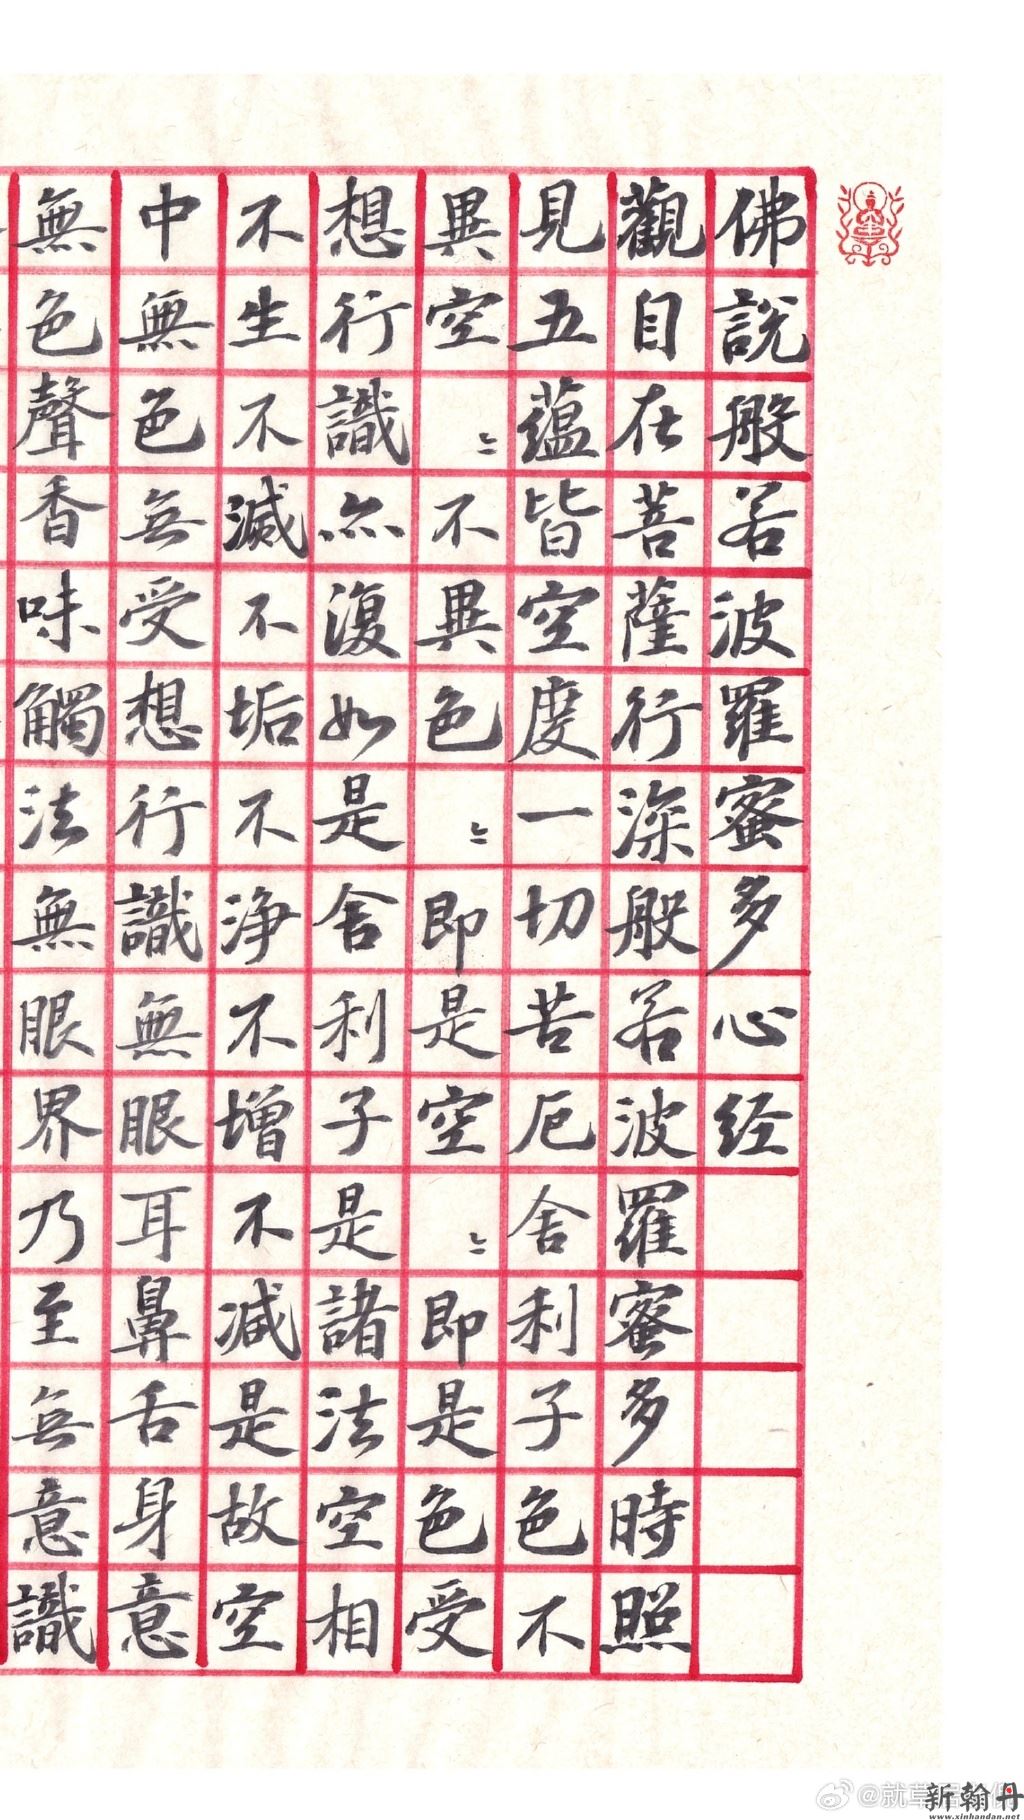 佛說般若波羅蜜多心经
觀自在菩薩行深般若波羅蜜多時照
見五蘊皆空度一切苦厄舍利子色不
異空〻不異色〻即是空〻即是色受
想行識亦復如是舍利子是諸法空相
不生不滅不垢不淨不增不減是故空
中無色無受想行識無眼耳鼻舌身意
無色聲香味觸法無眼界乃至無意識
新翰丹
www.xinhandan.net